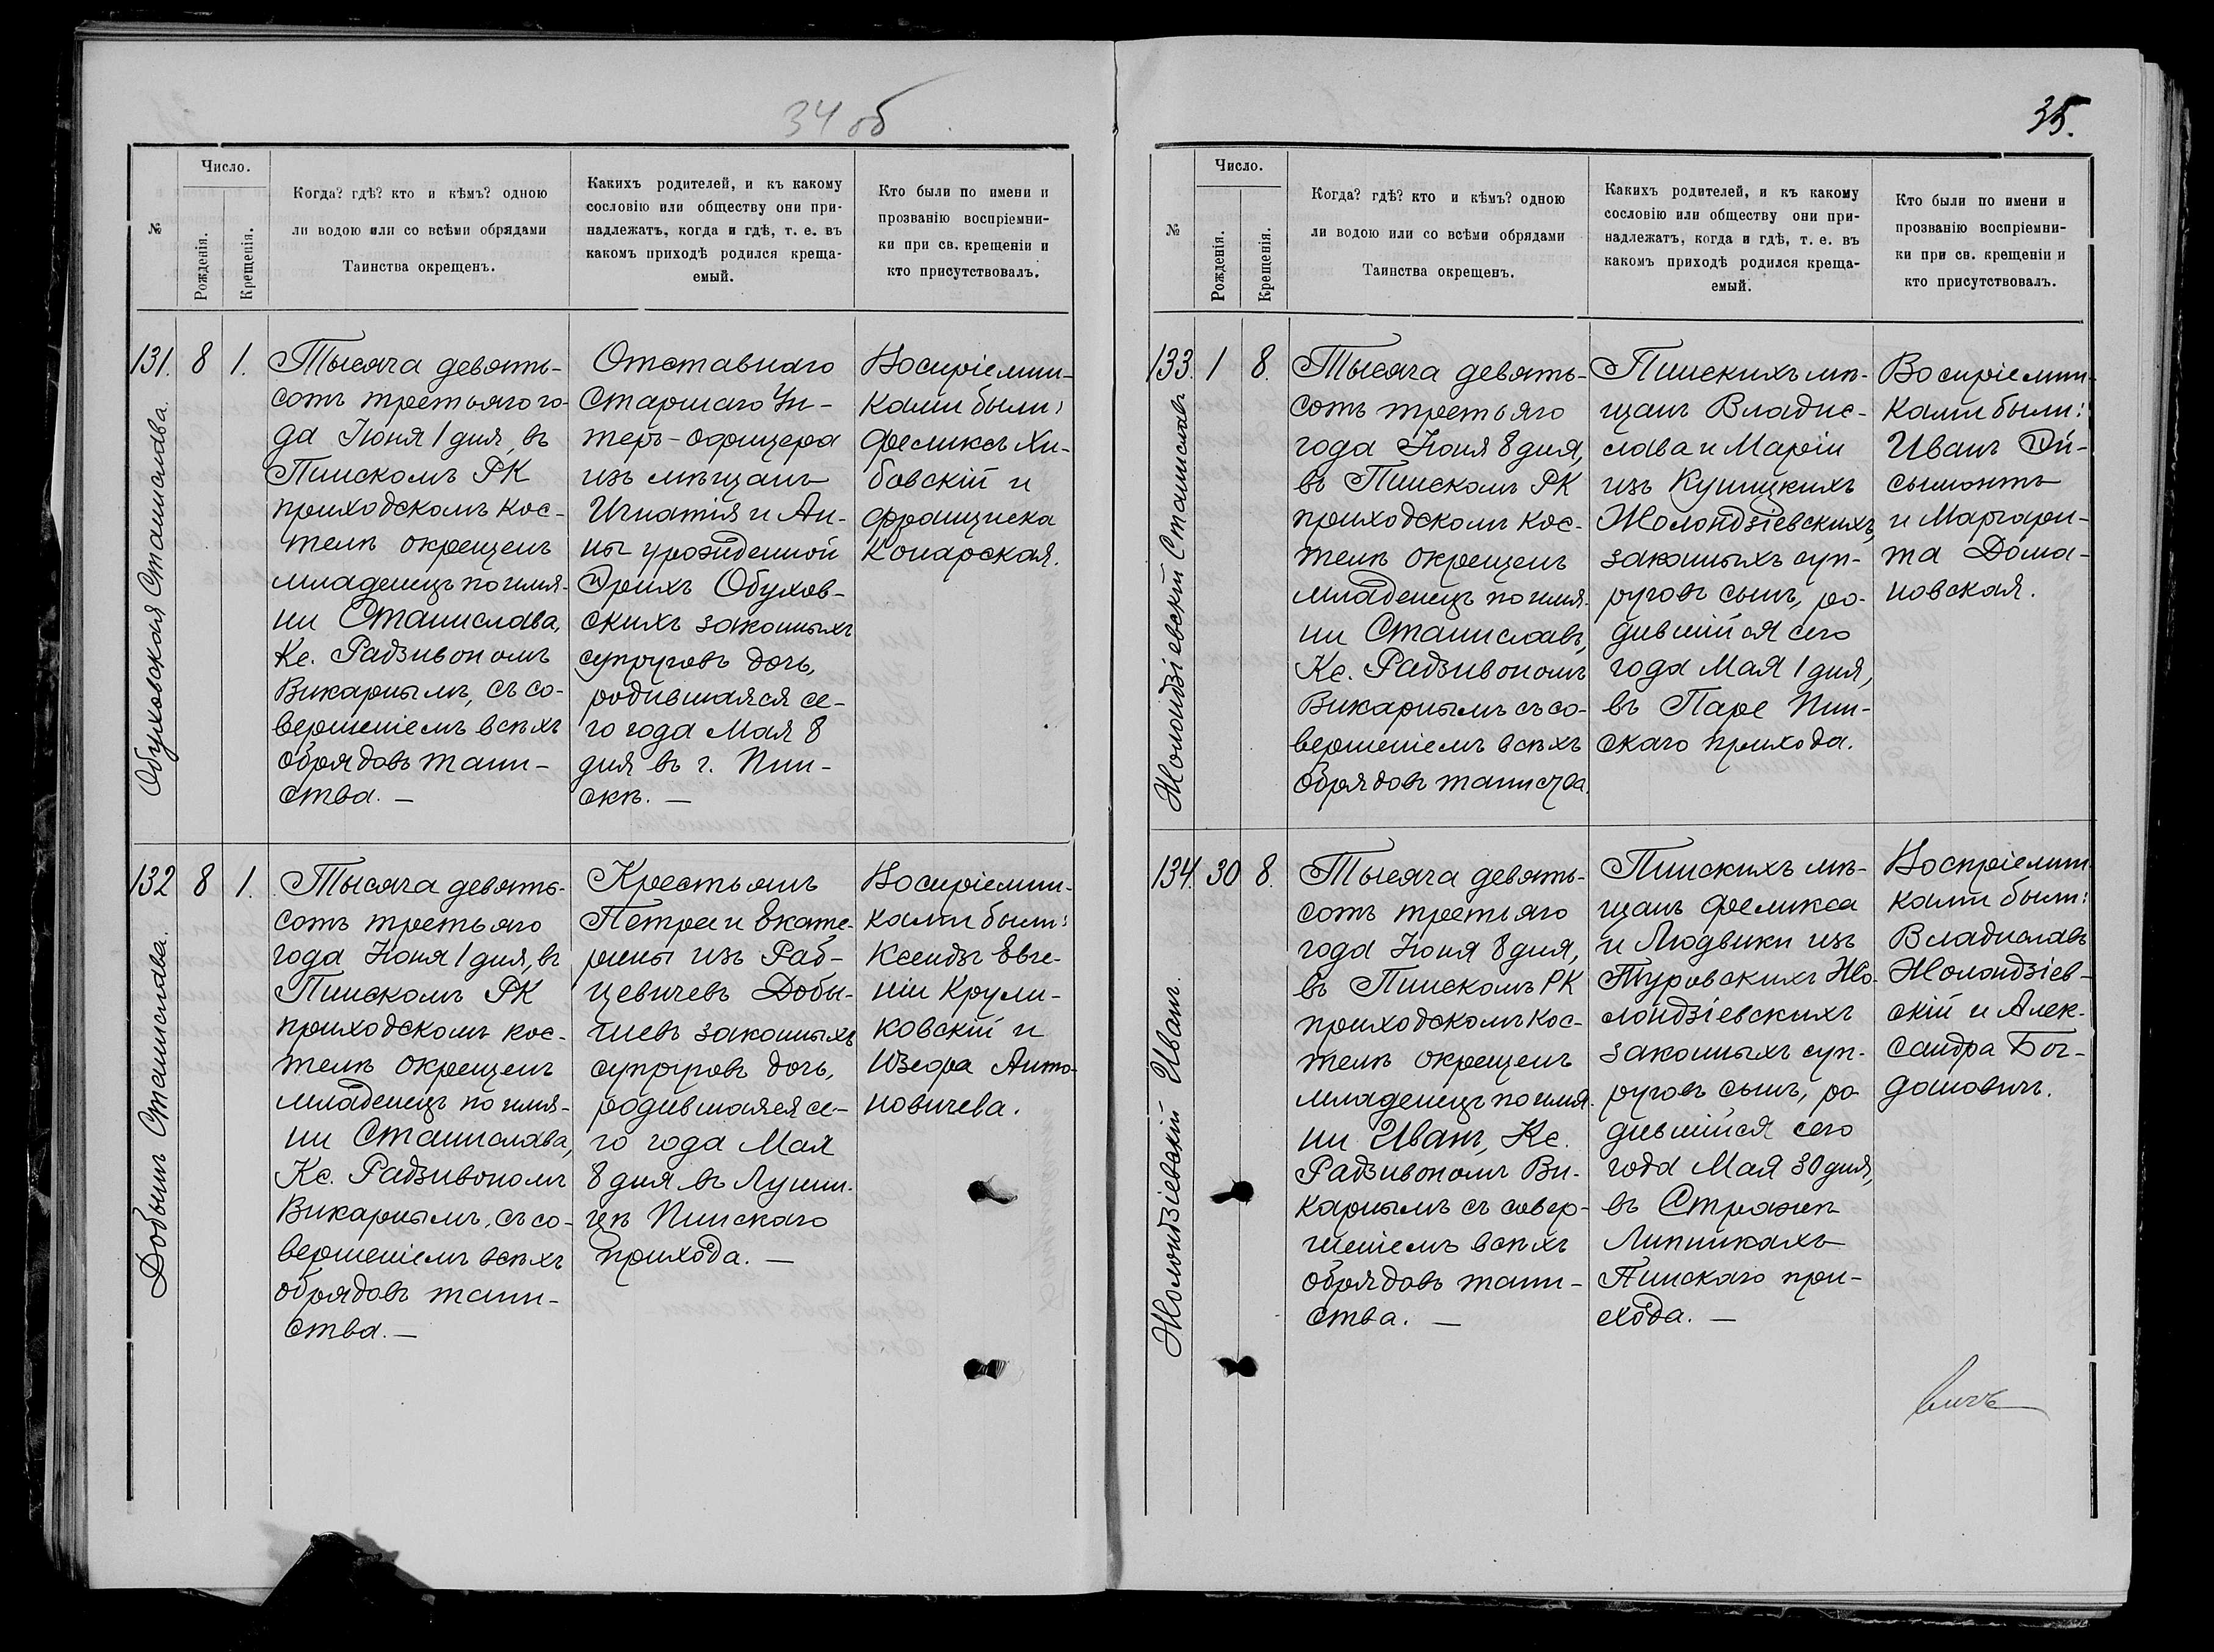 34 об
Число.
№
Рожденія.
Крещенія.
Когда? гдѣ? кто и кѣмъ? одною
ли водою или со всѣми обрядами
Таинства окрещенъ.
Какихъ родителей, и къ какому
сословію или обществу они при-
надлежатъ, когда и гдѣ, т. е. въ
какомъ приходѣ родился креща-
емый.
Кто были по имени и
прозванію воспріемни-
ки при св. крещеніи и
кто присутствовалъ.
131. 8 1.
Обуховская Станислава.
Тысяча девять-
сотъ третьяго го-
да Іюня 1 дня, въ
Пинскомъ РК
приходскомъ кос-
телѣ окрещенъ
младенецъ по имя-
ни Станислава,
Кс. Радзивономъ
Викарнымъ, съ со-
вершеніемъ всѣхъ
обрядовъ таин-
ства. —
Отставнаго
Старшаго Ун-
теръ-офицера
изъ мѣщанъ
Игнатія и Ан-
ны урожденной
Эрихъ Обухов-
скихъ законныхъ
супруговъ дочь,
родившаяся се-
го года Мая 8
дня въ г. Пин-
скѣ. —
Воспріемни-
ками были:
Феликсъ Хи-
бовскій и
Франциска
Конарская.
132 8 1.
Добышъ Станислава.
Тысяча девять-
сотъ третьяго
года Іюня 1 дня, въ
Пинскомъ РК
приходскомъ кос-
телѣ окрещенъ
младенецъ по имя-
ни Станислава,
Кс. Радзивономъ
Викарнымъ, съ со-
вершеніемъ всѣхъ
обрядовъ таин-
ства. —
Крестьянъ
Петра и Екате-
рины изъ Раб-
цевичевъ Добы-
шевъ законныхъ
супруговъ дочь,
родившаяся се-
го года Мая
8 дня въ Лунин-
цѣ Пинскаго
прихода. —
Воспріемни-
ками были:
Ксендзъ Евге-
ній Крули-
ковскій и
Изора Анто-
новичева.
35.
Число.
№
Рожденія.
Крещенія.
Когда? гдѣ? кто и кѣмъ? одною
ли водою или со всѣми обрядами
Таинства окрещенъ.
Какихъ родителей, и къ какому
сословію или обществу они при-
надлежатъ, когда и гдѣ, т. е. въ
какомъ приходѣ родился креща-
емый.
Кто были по имени и
прозванію воспріемни-
ки при св. крещеніи и
кто присутствовалъ.
133. 1 8.
Жолондзіевскій Станиславъ
Тысяча девять-
сотъ третьяго
года Іюня 8 дня,
въ Пинскомъ РК
приходскомъ кос-
телѣ окрещенъ
младенецъ по имя-
ни Станиславъ,
Кс. Радзивономъ
Викарнымъ съ со-
вершеніемъ всѣхъ
обрядовъ таинства.
Пинскихъ мѣ-
щанъ Владис-
лава и Маріи
изъ Куницкихъ
Жолондзіевскихъ,
законныхъ суп-
руговъ сынъ, ро-
дившійся сего
года Мая 1 дня,
въ Паре Пин-
скаго прихода.
Воспріемни-
ками были:
Иванъ Эй-
сымонтъ
и Маргари-
та Дома-
новская.
134. 30 8.
Жолондзіевскій Иванъ.
Тысяча девять-
сотъ третьяго
года Іюня 8 дня,
въ Пинскомъ РК
приходскомъ кос-
телѣ окрещенъ
младенецъ по имя-
ни Иванъ, Кс.
Радзивономъ Ви-
карнымъ съ совер-
шеніемъ всѣхъ
обрядовъ таин-
ства. —
Пинскихъ мѣ-
щанъ Феликса
и Людвики изъ
Туровскихъ Жо-
лондзіевскихъ
законныхъ суп-
руговъ сынъ, ро-
дившійся сего
года Мая 30 дня,
въ Стражѣ
Липникахъ
Пинскаго при-
хода. —
Воспріемни-
ками были:
Владиславъ
Жолондзіев-
скій и Алек-
сандра Бог-
дановичъ.